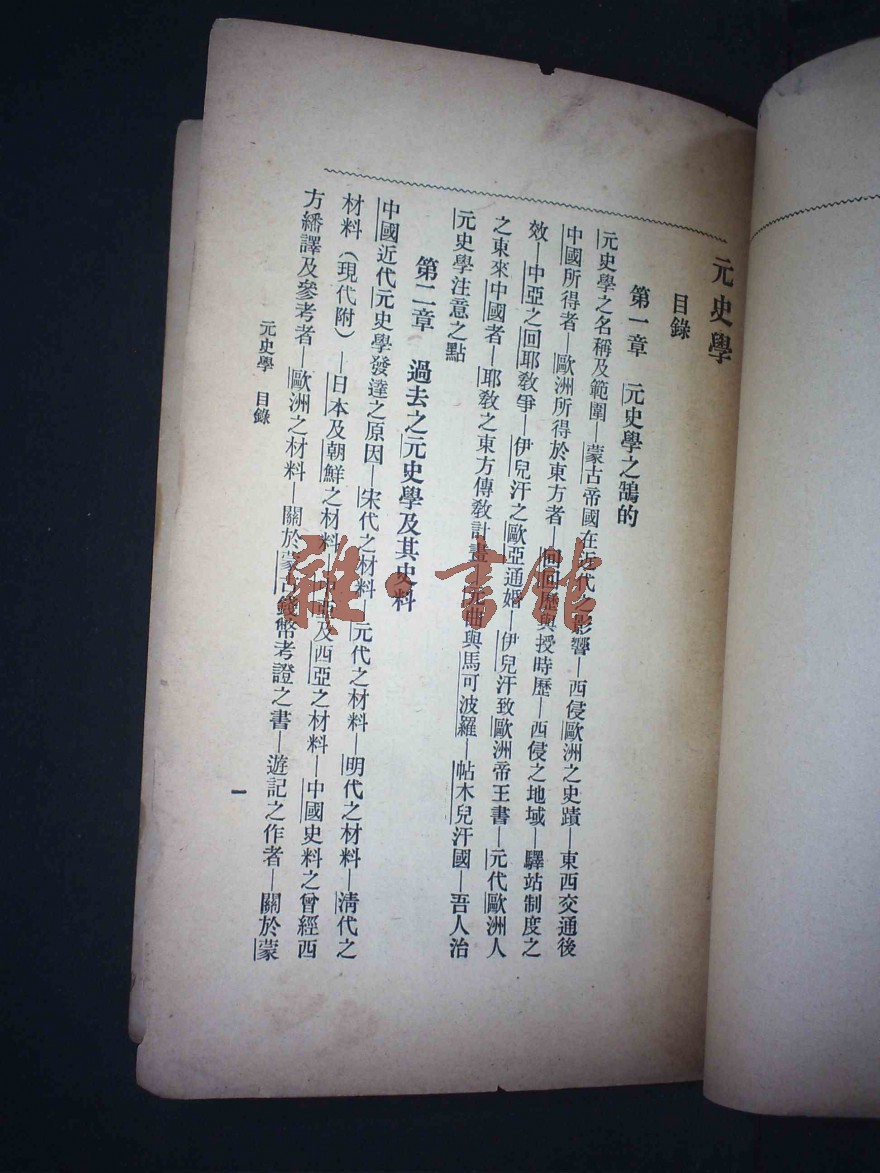 元史學
目錄
第一章 元史學之鵠的
元史學之名稱及範圍—蒙古帝國在近代之影響—西侵歐洲之史蹟—東西交通後
中國所得者—歐洲所得於東方者—回回歷與授時歷—西侵之地域—驛站制度之
效—中亞之回耶教爭—伊兒汗之歐亞通婚—伊兒汗致歐洲帝王書—元代歐洲人
之東來中國者—耶教之東方傳教計畫—元曲與馬可波羅—帖木兒汗國—吾人治
元史學注意之點
第二章 過去之元史學及其史料
中國近代元史學發達之原因—宋代之材料—元代之材料—明代之材料—清代之
材料（現代附）—日本及朝鮮之材料—中亞及西亞之材料—中國史料之曾經西
方繙譯及參考者—歐洲之材料—關於蒙古錢幣考證之書—遊記之作者—關於蒙
元史學 目錄
一